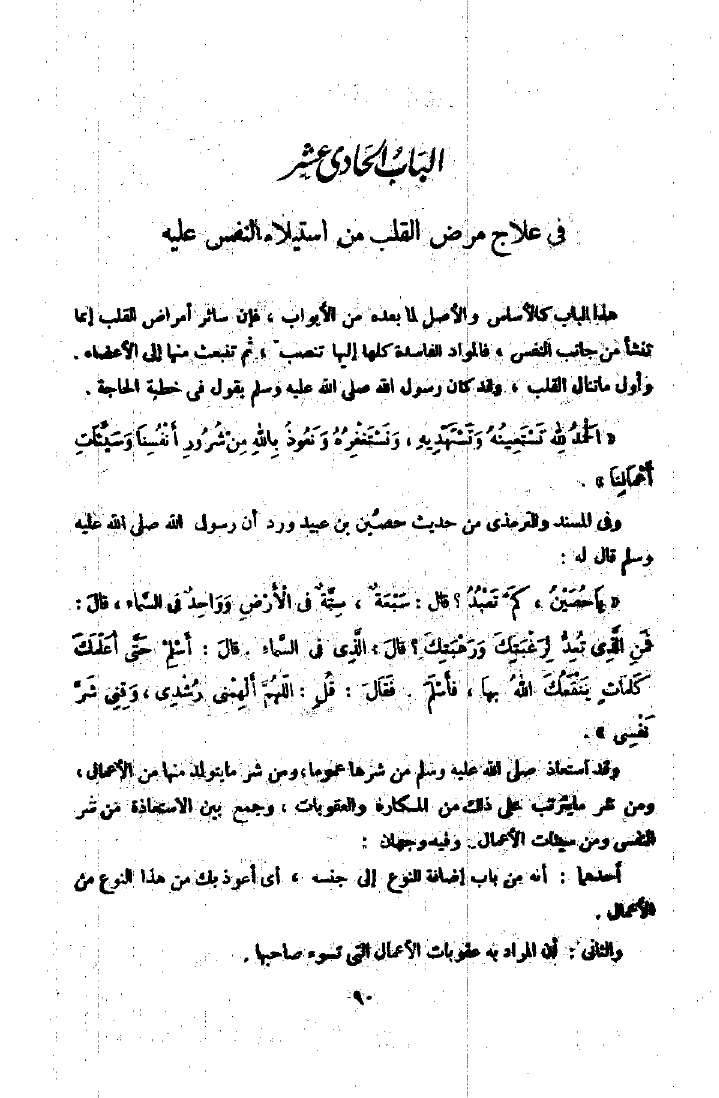 البَابُ الحَادِى عَشِر
فى علاج مرض القلب من استيلاء النفس عليه
هذا الباب كالأساس والأصل لما بعده من الأبواب ، فإن سائر أمراض القلب إنما
تنشأ من جانب النفس ، فالمواد الفاسدة كلها إليها تنصب ، ثم تنبعث منها إلى الأعضاء .
وأول ماتنال القلب ، وقد كان رسول الله صلى الله عليه وسلم يقول فى خطبة الحاجة .
« الحَمْدُ لِلهِ نَسْتَعِينُهُ وَنَسْتَهْدِيهِ ، وَنَسْتَغْفِرُهُ وَنَعُوذُ بِاللهِ مِنْ شُرُورِ أَنْفُسِنَا وَسَيِّئَاتِ
أَعْمَالِنَا » .
وفى المسند والترمذى من حديث حصين بن عبيد ورد أن رسول الله صلى الله عليه
وسلم قال له :
« يَاحُصَيْنُ ، كَمْ تَعْبُدُ ؟ قال : سَبْعَةً ، سِتَّةٌ فى الْأَرْضِ وَوَاحِدٌ فى السَّماء ، قالَ :
فَمنِ الَّذِى تُعِدُّ لِرَغْبَتِكَ وَرَهْبَتِكَ ؟ قالَ : الَّذِى فى السَّماء . قالَ : أَسْلِمْ حَتَّى أُعَلِّمَكَ
كَلِمَاتٍ يَنْفَعُكَ اللهُ بها ، فأَسْلَمَ . فَقَالَ : قُلِ : اللّهُمَّ أَلْهِمْنِى رُشْدِى ، وَقِنِى شَرَّ
نَفْسِى » .
وقد استعاذ صلى الله عليه وسلم من شرها عموما، ومن شر مايتولد منها من الأعمال ،
ومن شر مايترتب على ذلك من المكاره والعقوبات ، وجمع بين الاستعاذة من شر
النفس ومن سيئات الأعمال . وفيه وجهان :
أحدهما : أنه من باب إضافة النوع إلى جنسه ، أى أعوذ بك من هذا النوع من
الأعمال .
والثانى : أن المراد به عقوبات الأعمال التى تسوء صاحبها .
٩٠